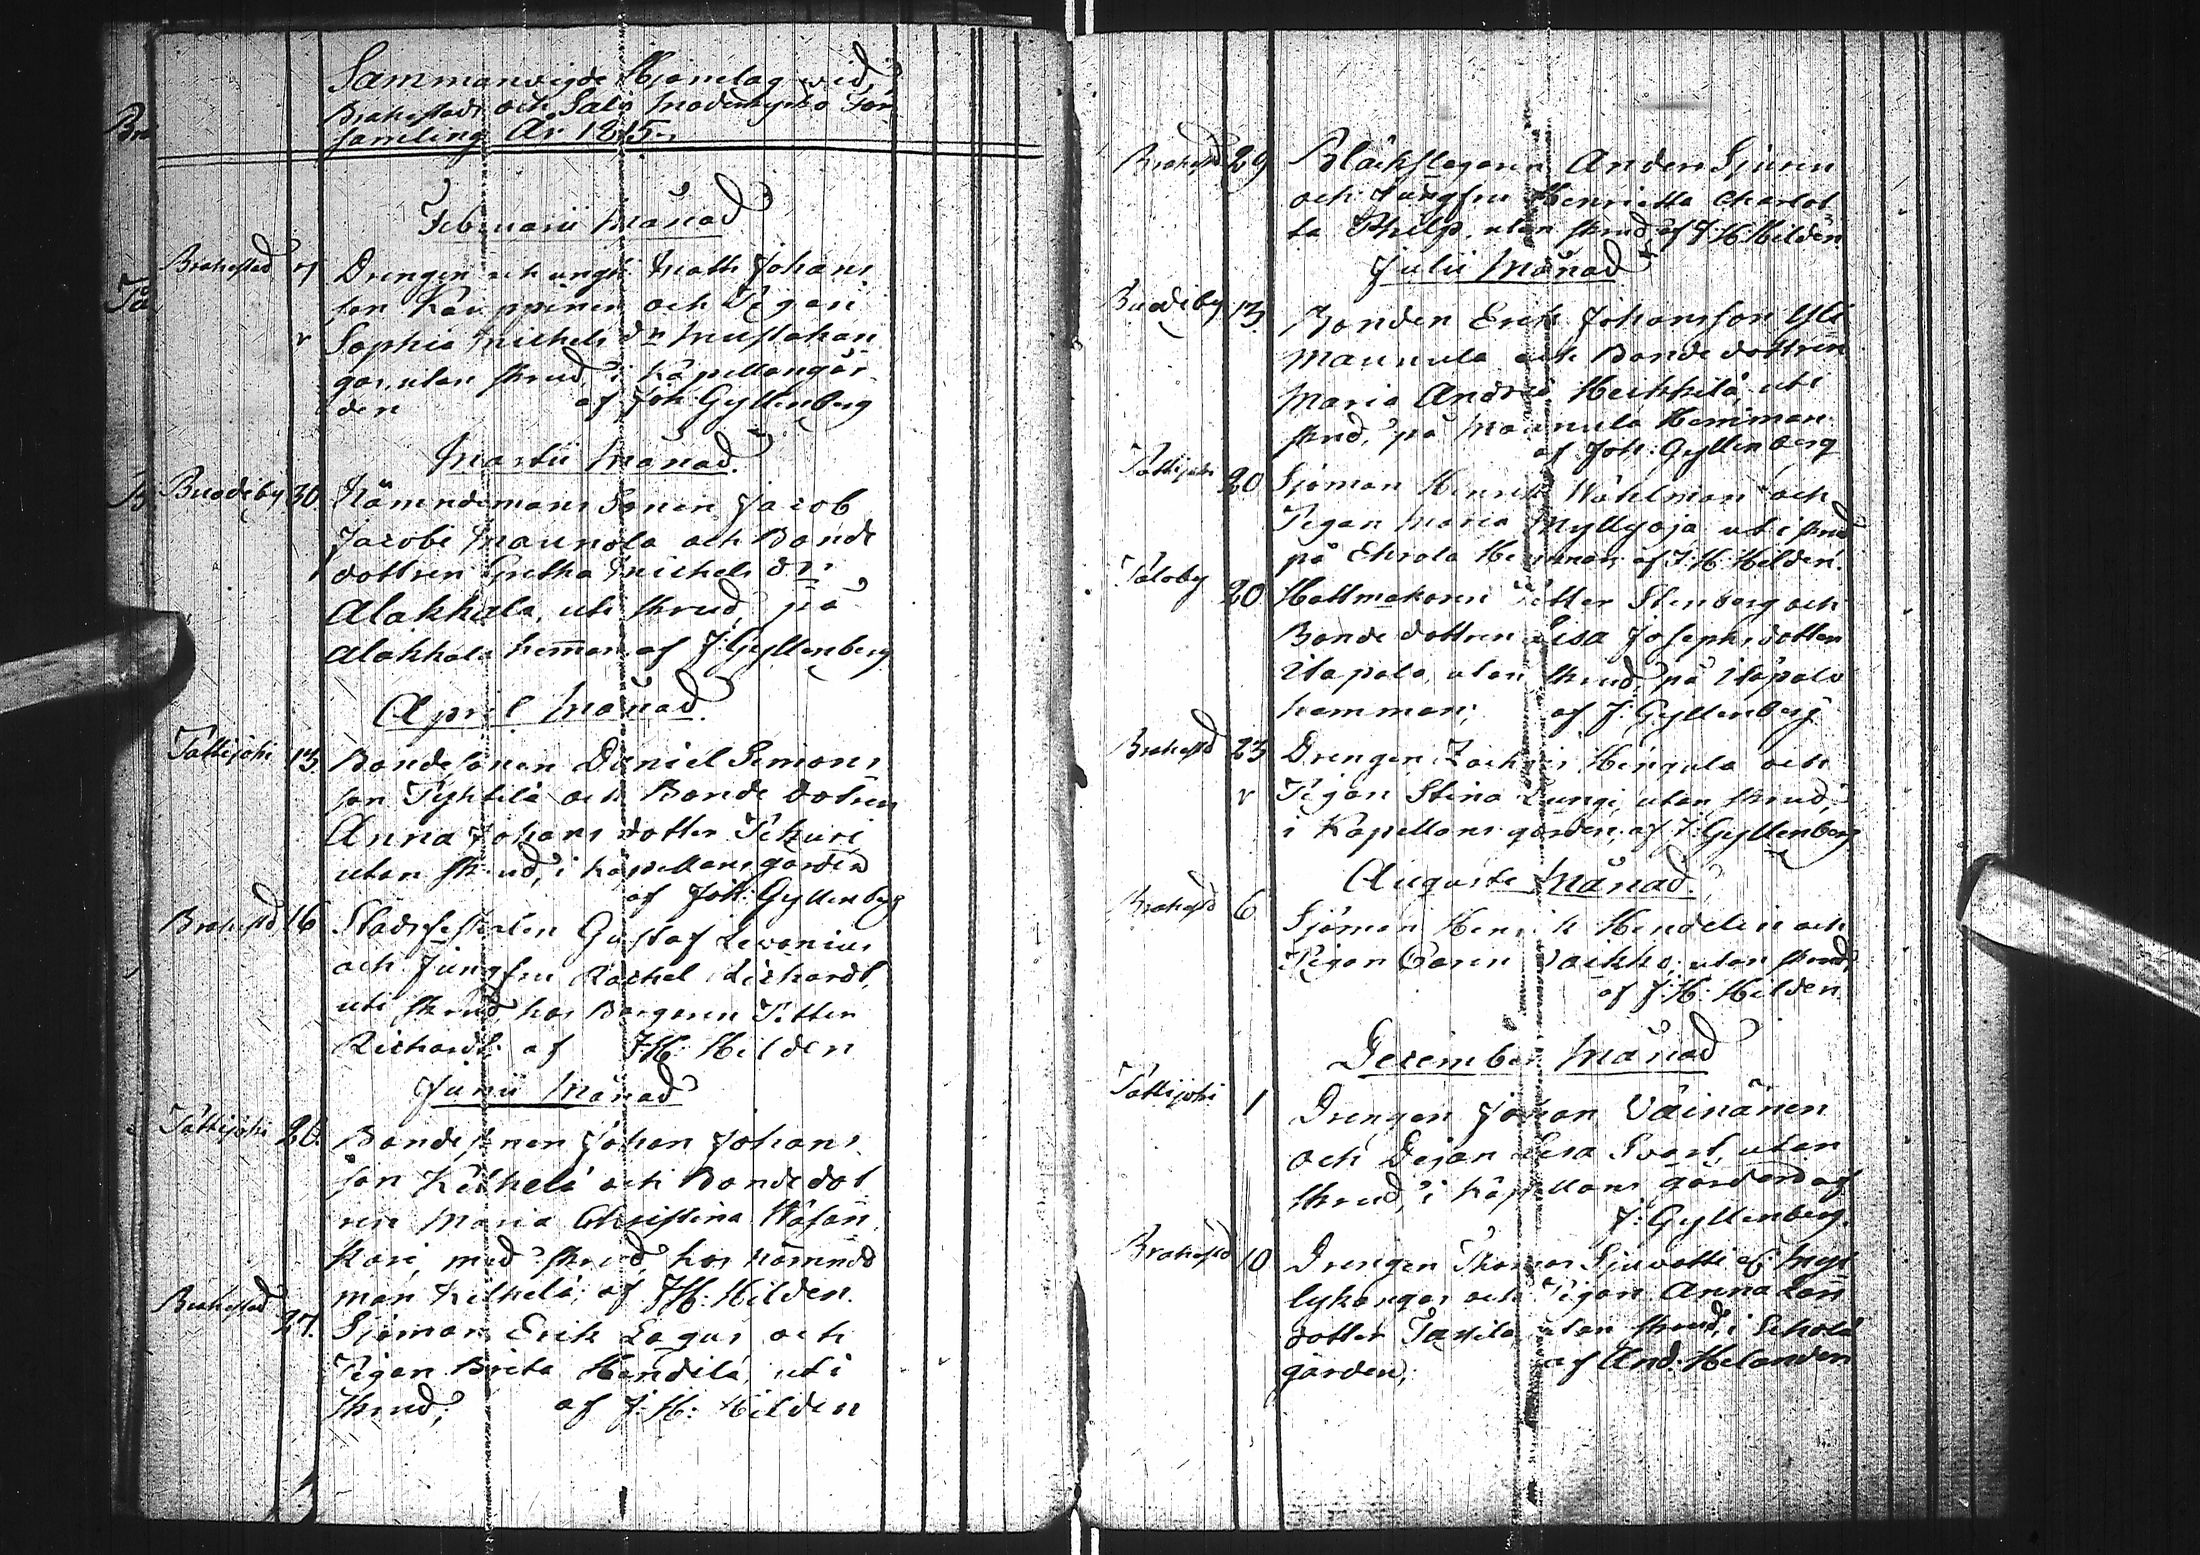 Sammanvigde Hjonelag wid
Brahestads och Salo moderkyrko För
samling År 1815.
Februarii Månad
Brahestad
Drengen och ungk: Matts Johans
son Kauppinen och Pigan
Sophia Michels dr Mustakan
gas, utan skrud, i Kapellansgår
den af Joh: Gyllenberg
Martii Månad.
Buodiby 30. Nämndemans Sonen Jacob
Jacobi Maunola och Bonde
dottren Gretha Michels dr
Alakkala, uti skrud, på
Alakkala heman, af J: Gyllenberg
April Månad.
Pattijoki 13. Bondesonen Daniel Simons
son Tyhtilä och Bonde dotren
Anna Johans dotter Pekuri
utan skrud, i kapellansgården
af Joh: Gyllenberg
Brahestd 16. Stadsfiskalen Gustaf Levonius
och Jungfru Rachel Richardt,
uti skrud, hos Borgaren Petter
Richardt: af J H: Hilden
Junii Månad
Pattijoki 20. Bondesonen Johan Johans
son Keskelä och Bondedot
ren Maria Christina Wäsan
kari, med skrud, hos nämnd
man Kelhelä; af J H: Hilden.
Brahestad 27. Sjöman Erik Lagus och
Pigan Brita Handila, uti
skrud; af J: H: Hilden
Brahestd 29 Bläckslagaren Anders Sjuren
och Jungfru Henrietta Charlot
ta Philp, utan skrud, af J H Hilden
Julii Månad
Buodiby 13. Bonden Erik Johansson Yli
Maunula och Bonde dottren
Maria Andrs Heikkilä, uti
skrud, på Maunula Hemman
af Joh: Gyllenberg
Pattijoki 20 Sjöman Henrik Wahlman och
Pigan Maria Myllyoja uti skrud
på Ekrola Hemman, af J: H: Hilden.
Paloby 20 Hattmakaren Petter Stenberg och
Bonde dottren Lisa Josephs dotter
Utapalo, utan skrud, på Utapalo
hemman; af J: Gyllenberg
Brahestd 23 Drengen Zachris Hirgula och
r Pigan Stina Lungi, utan skrud,
i Kapellans gården, af J: Gyllenberg
Augusti Månad.
Brahestd 6. Sjöman Henrik Hendelin och
Pigan Carin Waikko, utan skrud,
af J: H: Hilden
December Månad
Pattijoki 1 Drengen Johan Väinänen
och Pigan Lisa Svart, utan
skrud, i Kapellans gården af
J: Gyllenberg.
Brahestd 10 Drengen Thomas Sjuvatti af Myl
lykangas och Pigan Anna Lars
dotter Tassila, utan skrud, i Schola
gården; af And: Helander